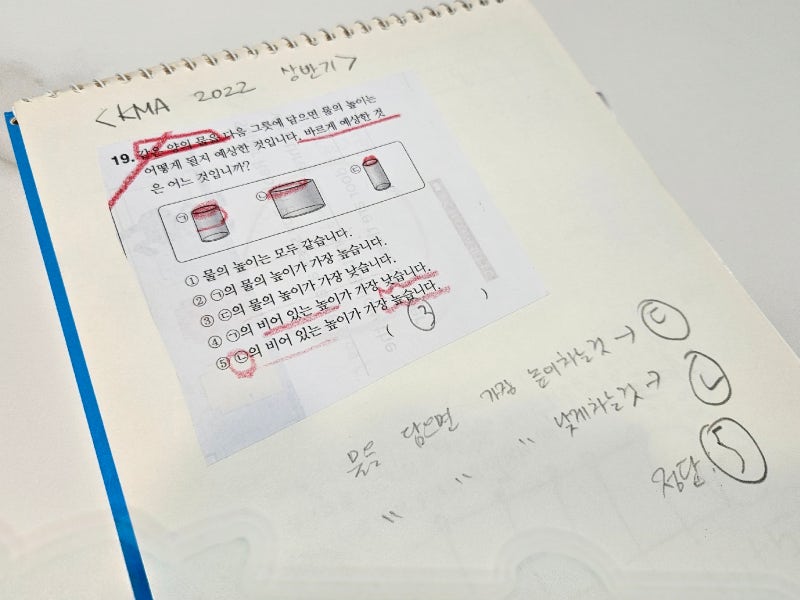 <KMA 2022 상반기>
19. 같은 양의 물을 다음 그릇에 담으면 물의 높이는
어떻게 될지 예상한 것입니다. 바르게 예상한 것
은 어느 것입니까?
㉠ ㉡ ㉢
① 물의 높이는 모두 같습니다.
② ㉠의 물의 높이가 가장 높습니다.
③ ㉢의 물의 높이가 가장 낮습니다.
④ ㉠의 비어 있는 높이가 가장 낮습니다.
⑤ ㉡의 비어 있는 높이가 가장 높습니다.
( 3 )
물을 담으면 가장 높이차는것 → ㄷ
" " " 낮게차는것 → ㄴ
정답. 5